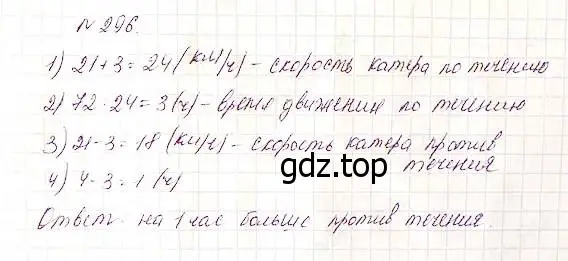 № 296.
1) 21+3=24 (км/ч) - скорость катера по течению
2) 72:24=3 (ч) - время движения по течению
3) 21-3=18 (км/ч) - скорость катера против
течения
gdz.top
4) 4-3=1 (ч)
Ответ: на 1 час больше против течения.